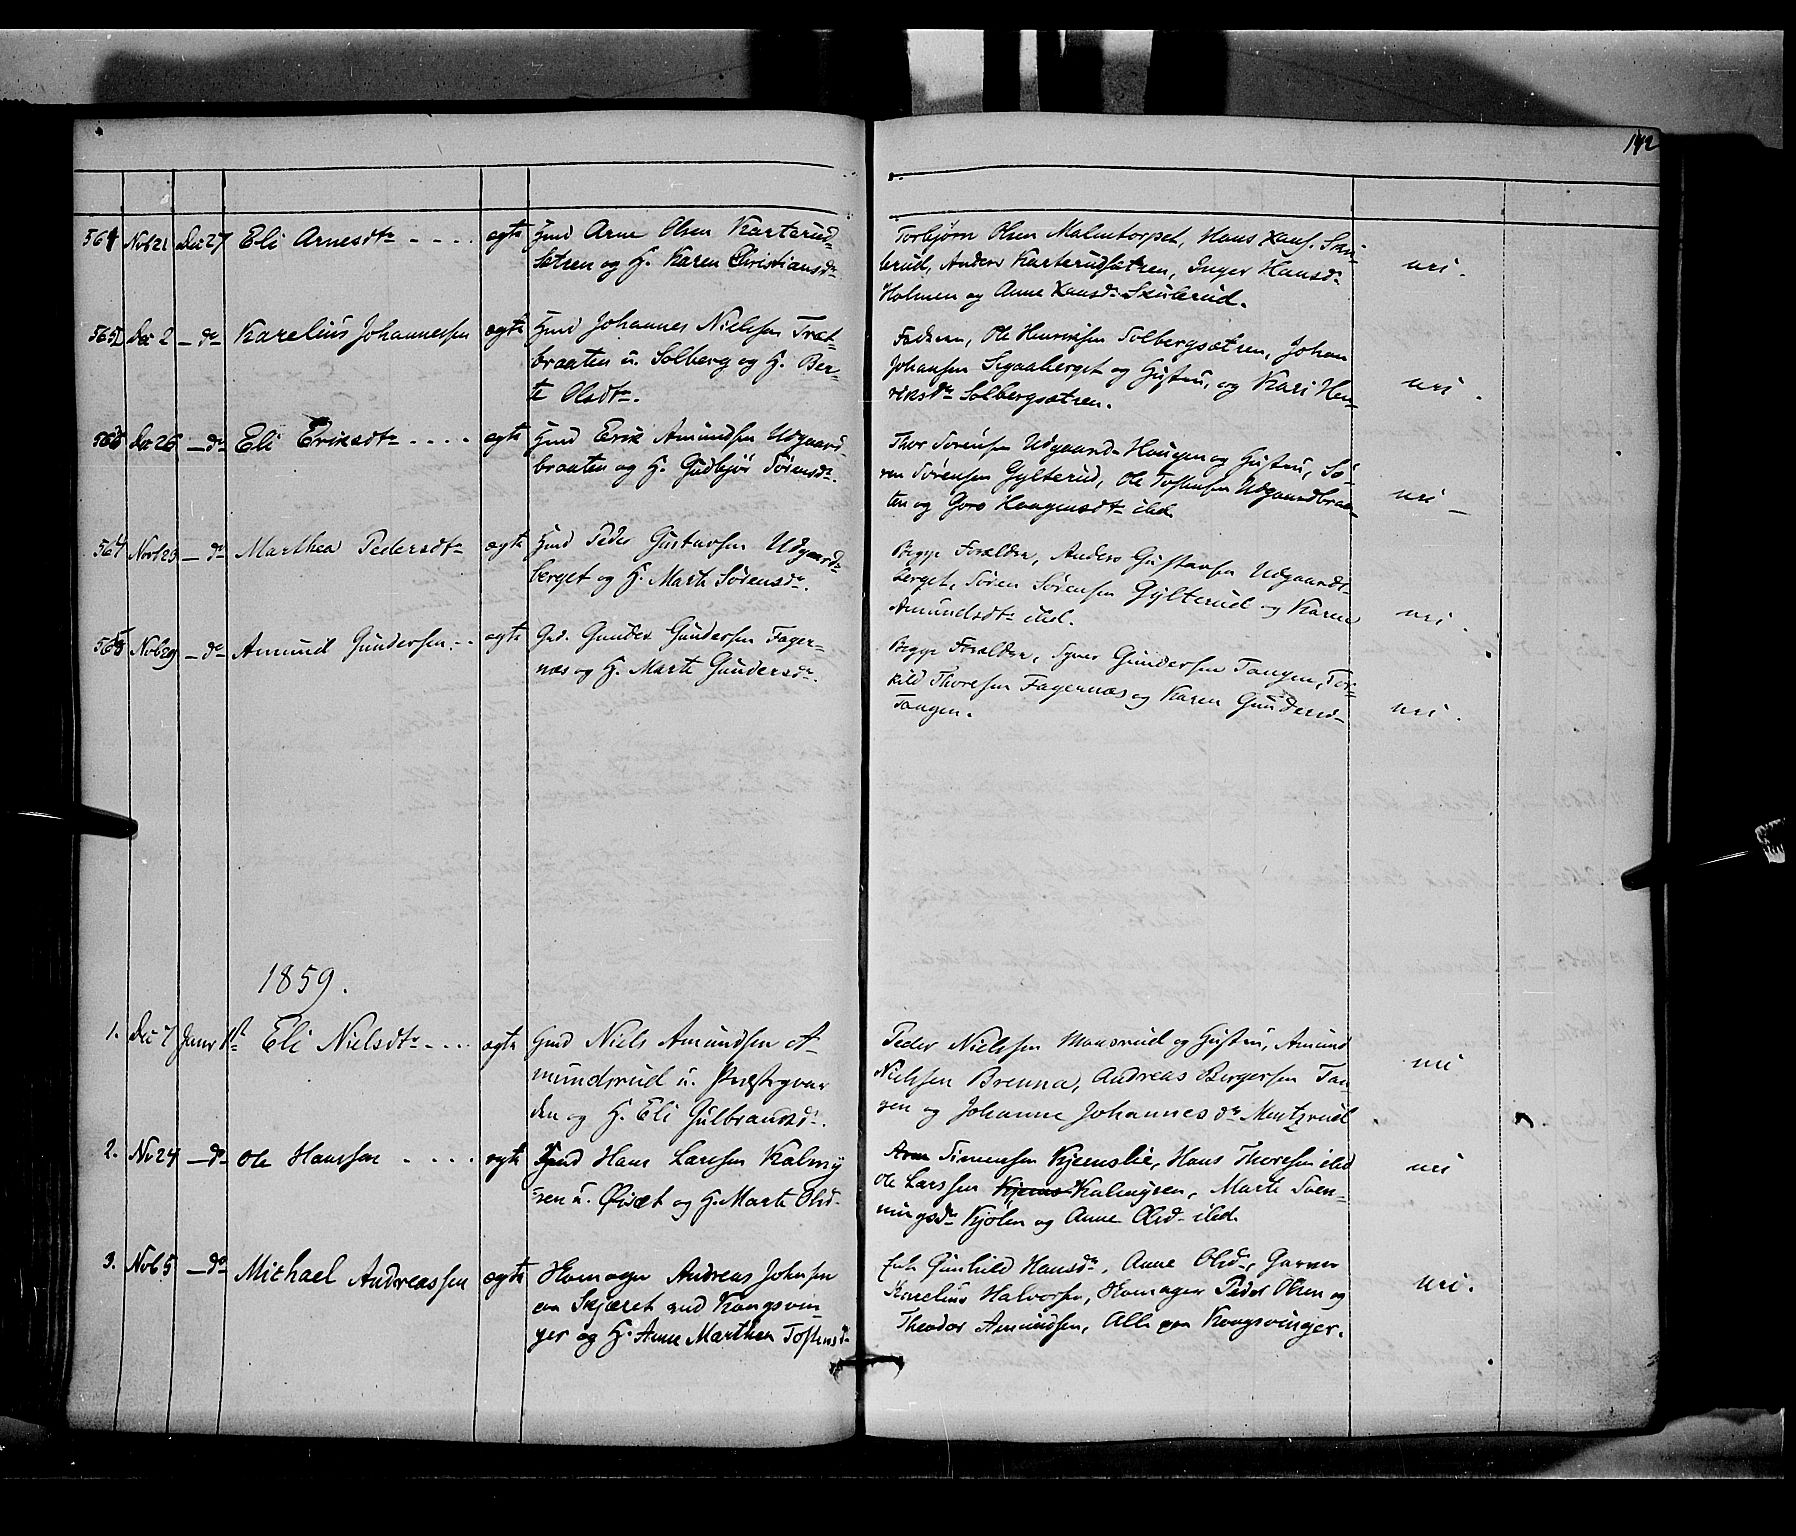 142
564 Nvb 21 Dec 27 Eli Arnesdtr ægte Gmd Arne Olsen Karterud-
sætren og H. Karen Christiansdr
Torbjørn Olsen Malmtorpet, Hans Hans. Sku-
lerud, Anders Karterudsætren, Inger Hansdr
Holmen og Anne Hansdr Skulerud.
uri.
565 Dec 2 - do Karelius Johannessen ægte Gmd Johannes Nielsen Træt-
braaten u. Solberg og H. Ber-
te Olsdtr.
Faderen, Ole Henriksen Solbergsætren, Johan
Johansen Sigaaberget og Hustru, og Kari Hen-
riksdr Solbergsætren.
uri.
566 Dec 26 - do Eli Eriksdtr ægte Gmd Erik Amundsen Udgaard-
braaten og H. Gudbjør Sørensdr.
Thor Sørensen Udgaards-Haugen og Hustru, Sö-
ren Sørensen Gylterud, Ole Tostensen Udgaardbraa-
ten og Goro Haagensdtr ibid.
uri -
567 Novb 23 - do Marthea Pedersdtr ægte Gmd Peder Gustavsen Udgaard-
berget og H. Marte Sørensdr.
Begge Forældre, Anders Gustavsen Udgaards-
berget, Sören Sørensen Gylterud og Karen
Amundsdtr ibid.
uri.
568 Nvb 29 - do Amund Gundersen ægte Gmd. Gunder Gundersen Fager-
næs og H. Marte Gundersdr.
Begge Forældre, Syver Gundersen Tangen, Tor-
kild Thoresen Fagernæs og Karen Gundersd-
Tangen.
uri.
1859.
1. Dec 7 Janr 1st Eli Nielsdtr ægte Gmd Niels Amundsen A-
mundsrud u. Præstegaar
den og H. Eli Gulbrandsdr.
Peder Nielsen Monsrud og Hustru, Amund
Nielsen Brenna, Andreas Bergersen Tan-
gen og Johanne Johannesdr Mentzrud
uri
2. Nv 24 - do Ole Hanssen ægte Gmd Hans Larssen Kalmy
ren u. Øisæt og H. Marte Olsd-
Arne Simensen Kjernslie, Hans Thoresen ibid
Ole Larssen Kjerns Kalmyren, Marte Sven-
ningsdr Kjølen og Anne Olsd- ibid.
uri
3. Novb 5 - do Michael Andreassen ægte Andreas Johnsen
paa Skjæret ved Kongsvin-
ger og H. Anne Marthea Tostensd-
Enke Gunhild Hansdr, Anne Olsd-, Garver
Karelius Halvorsen, Peder Olsen og
Theodor Amundsen, Alle paa Kongsvinger.
uri.